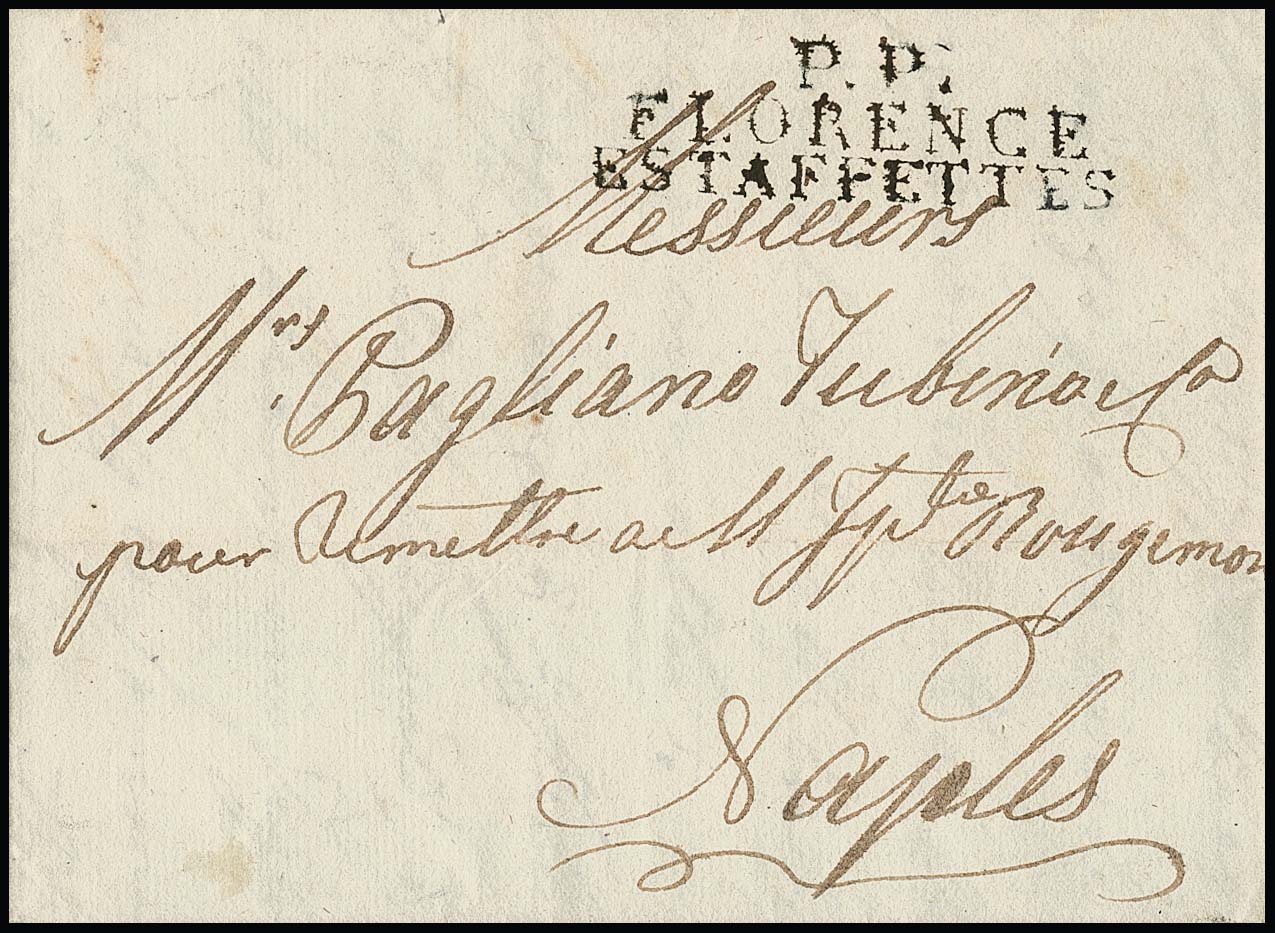 P. P.
FLORENCE
ESTAFFETTES
Messieurs
Mrs. Pagliano Tubino e Co
pour remettre a M Rougemon
Naples